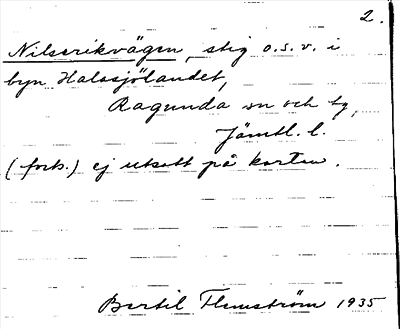 2.
Nilserikvägen, stig o.s.v. i
byn Halasjölandet,
Ragunda sn och by,
Jämtl. l.
(forts.) ej utsatt på kartan.
Bertil Flemström 1935